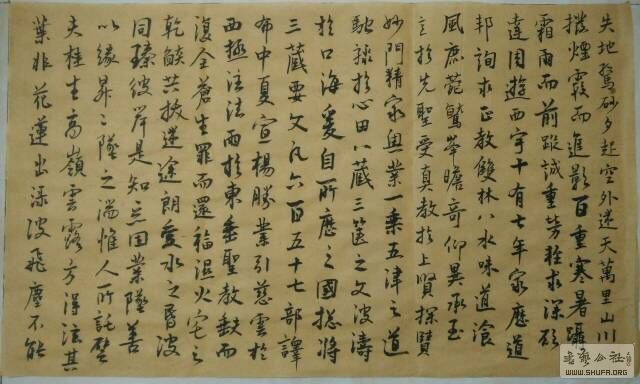 失地驚砂夕起空外迷天萬里山川
撥煙霞而進影百重寒暑躡
霜雨而前蹤誠重勞輕求深願
達周遊西宇十有七年窮歷道
邦詢求正教雙林八水味道飡
風鹿菀鷲峯瞻奇仰異承至
言於先聖受真教於上賢探賾
妙門精窮奧業一乘五津之道
馳驟於心田八藏三篋之文波濤
於口海爰自所歷之國摠將
三藏要文凡六百五十七部譯
布中夏宣楊勝業引慈雲於
西極注法雨於東垂聖教缺而
復全蒼生罪而還福濕火宅之
乾燄共拔迷途朗愛水之昏波
同臻彼岸是知惡因業墜善
以緣昇〻墜之端惟人所託譬
夫桂生高嶺雲露方得泫其
葉非花蓮出淥波飛塵不能
書法公社
WWW.SHUFA.ORG